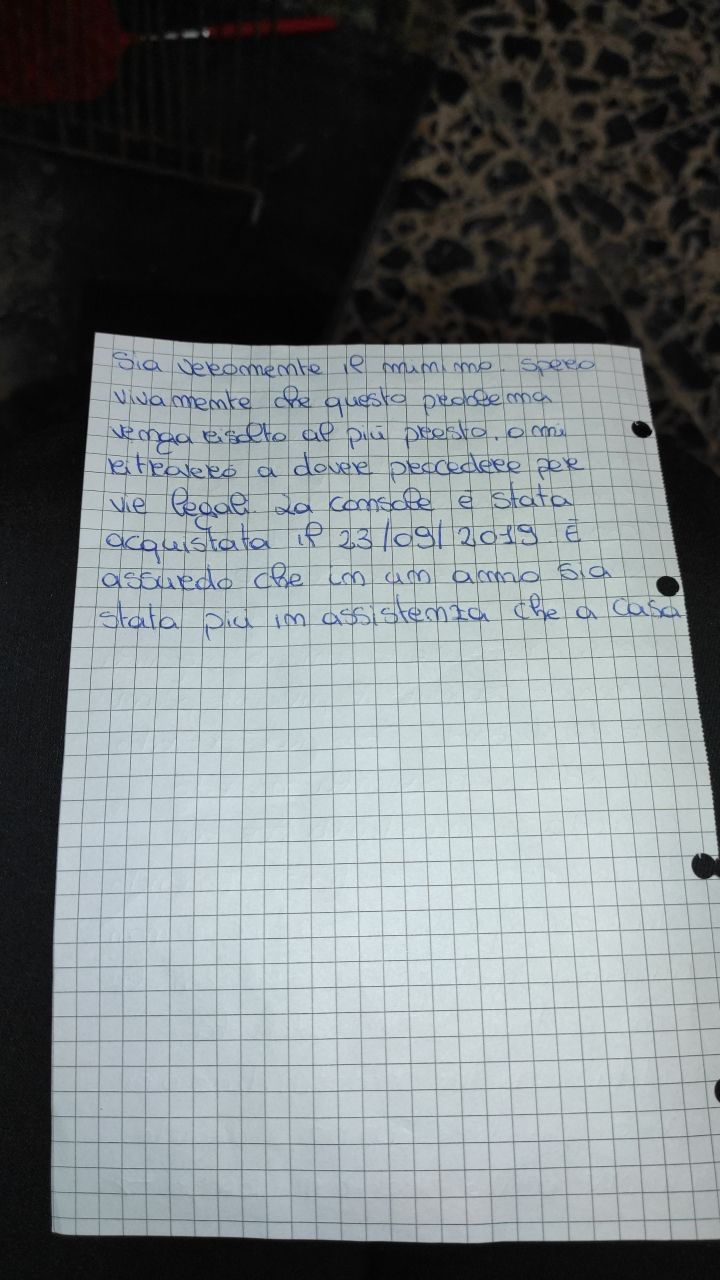 Sia veramente il munimo. Spero
vivamente che questo problema
venga risolto al più presto. o mi
ritroverò a dover proccedere per
vie legali. La console è stata
acquistata il 23/09/2019. È
assurdo che in un anno sia
stata più in assistenza che a casa